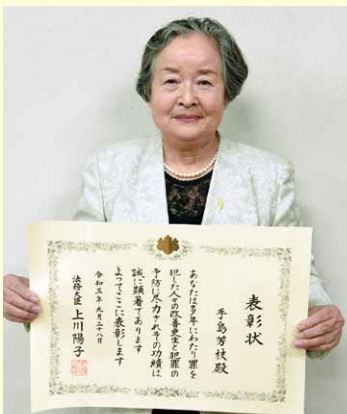 表彰状
手島芳枝殿
あなたは多年にわたり罪を
犯した人々の改善更生と犯罪の
予防に尽力されその功績は
誠に顕著であります
よってここに表彰します
令和三年九月二十八日
法務大臣 上川陽子